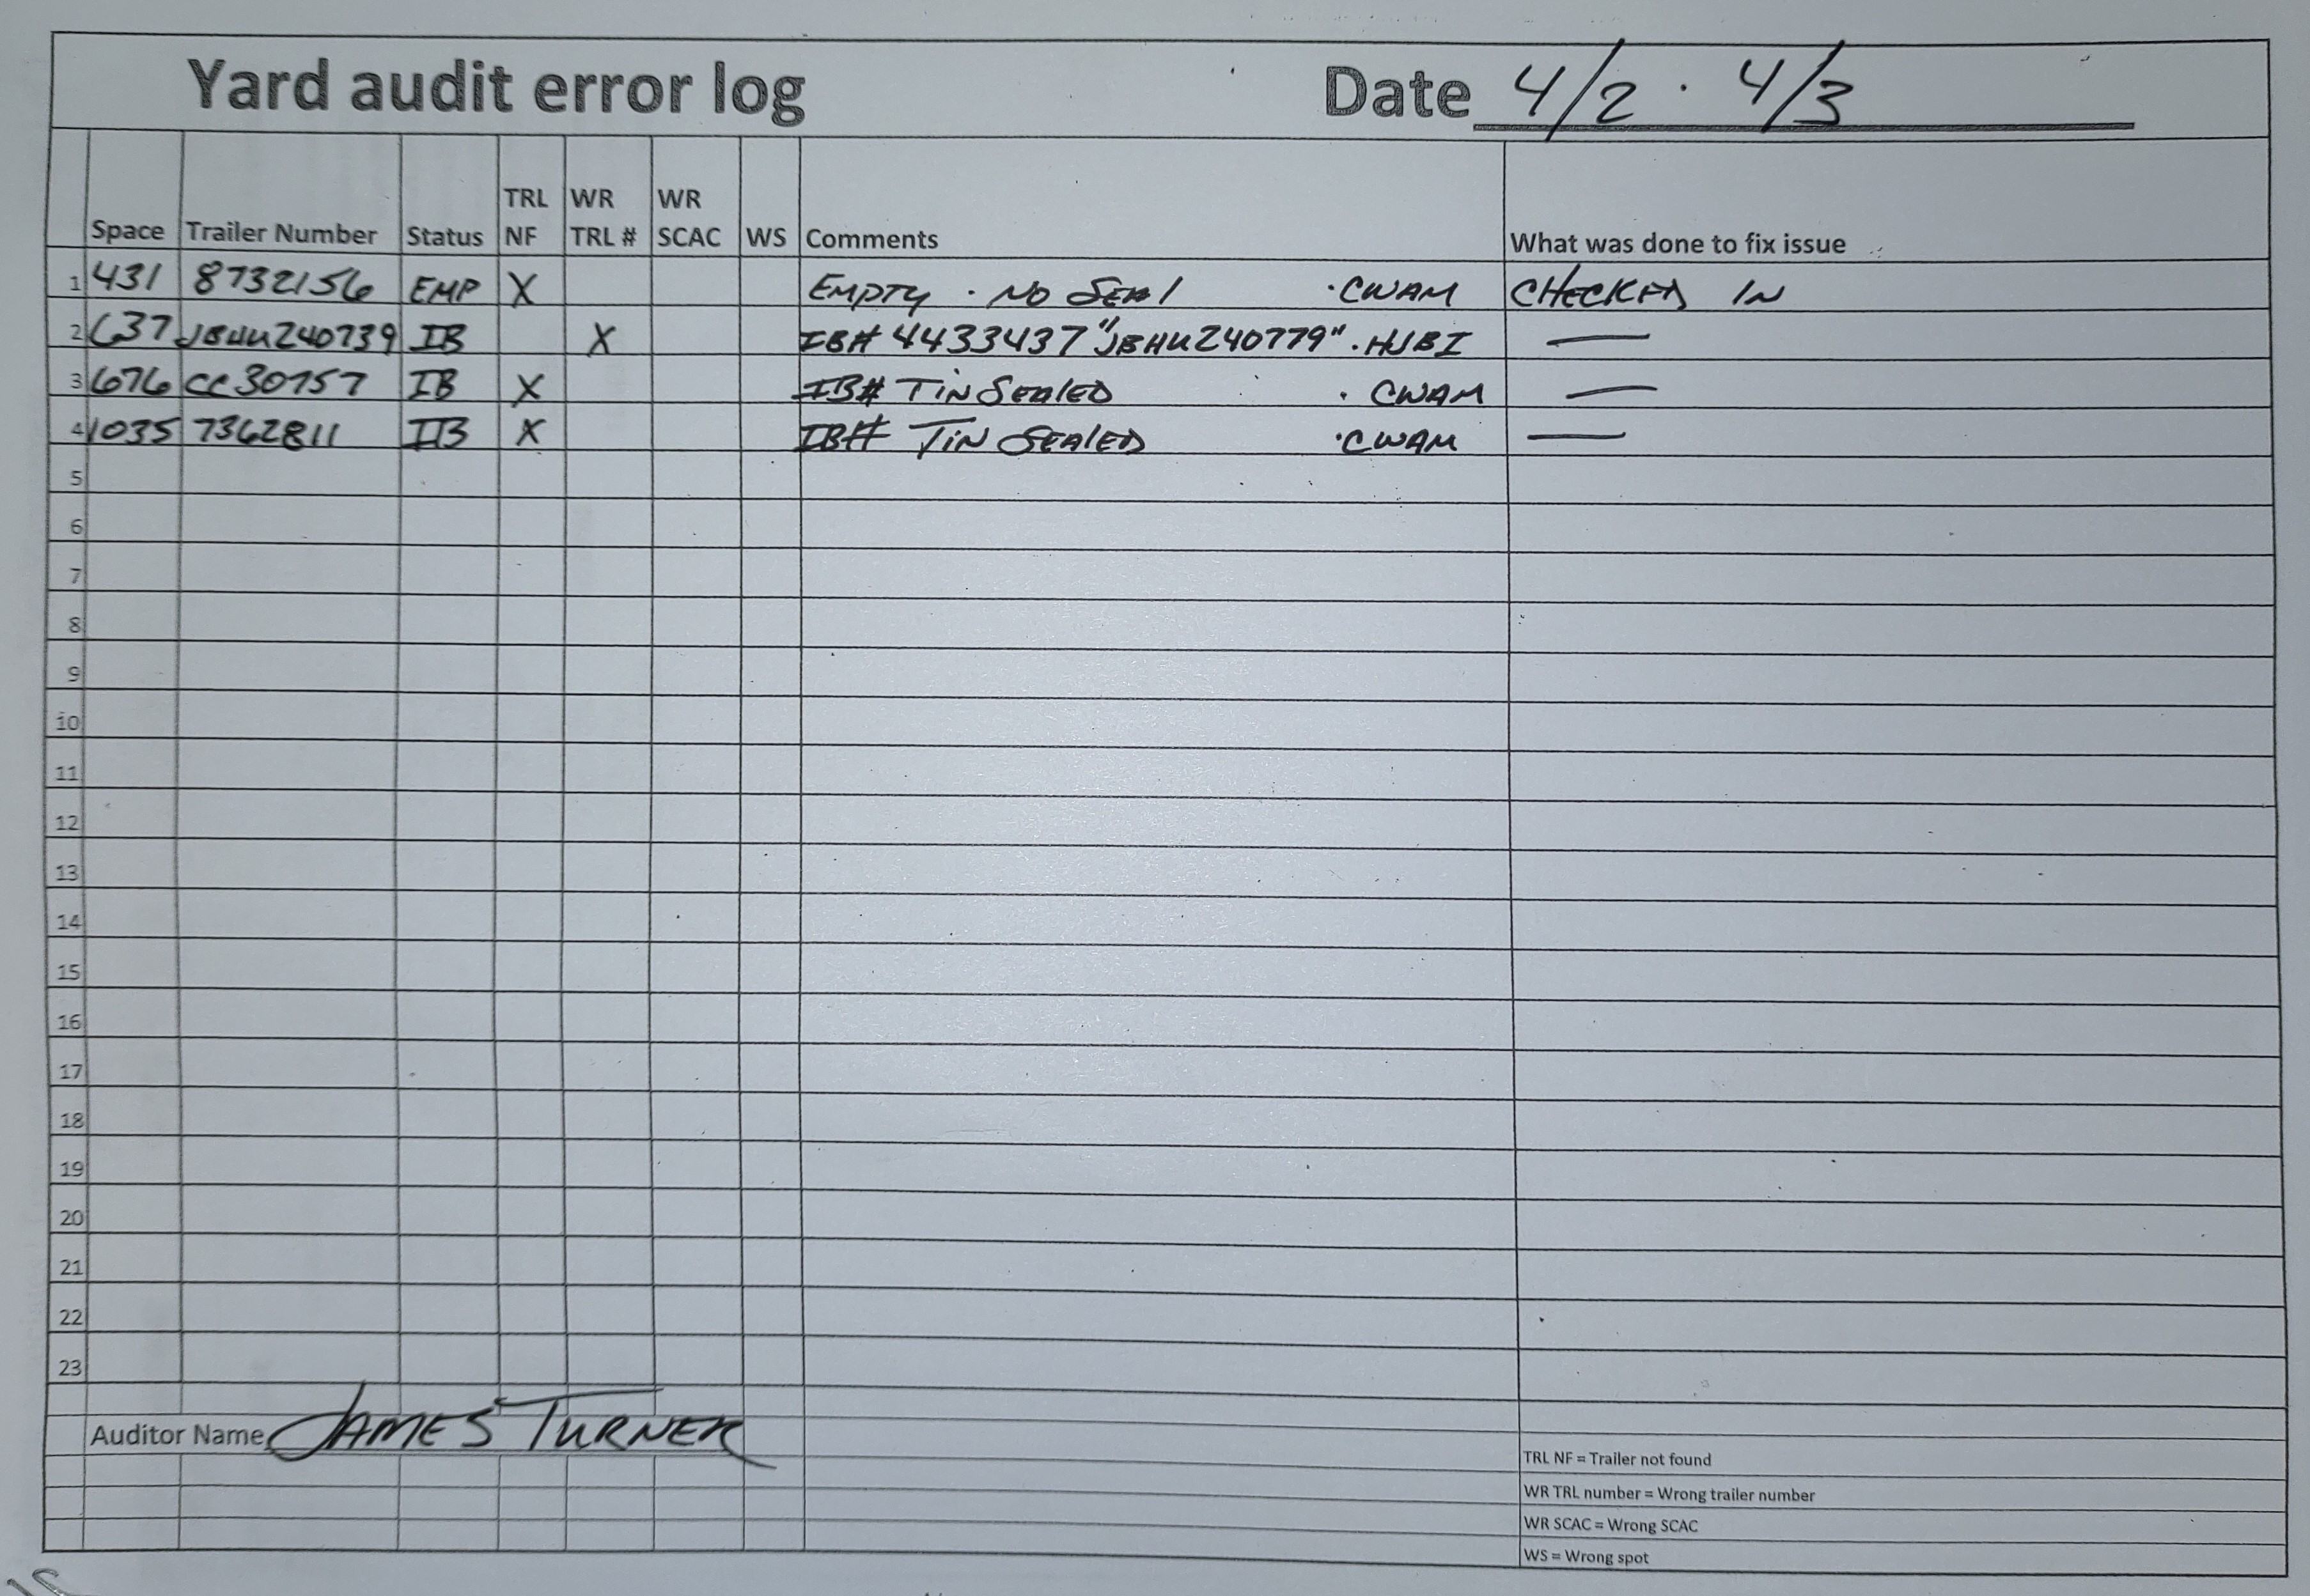 Yard audit error log Date 4/2 · 4/3
Space Trailer Number Status TRL NF WR TRL # WR SCAC WS Comments What was done to fix issue
1 431 8732156 EMP X EMPTY · NO SEAl · CWAM CHECKED IN
2 637 JBHU240739 IB X IB# 4433437 "JBHU240779" · HJBI —
3 676 CC30757 IB X IB# TiN SEAlED · CWAM —
4 1035 7362811 IB X IB# TiN SEAlED · CWAM —
5
6
7
8
9
10
11
12
13
14
15
16
17
18
19
20
21
22
23
Auditor Name JAMES TURNER
TRL NF = Trailer not found
WR TRL number = Wrong trailer number
WR SCAC = Wrong SCAC
WS = Wrong spot